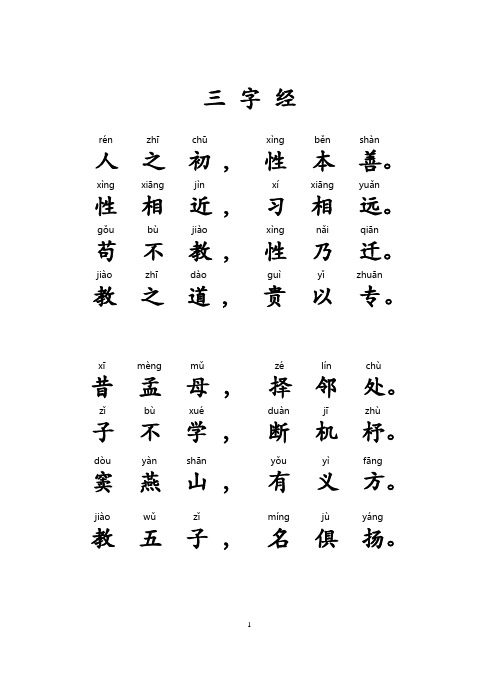 三 字 经
rén zhī chū xìng běn shàn
人 之 初 , 性 本 善。
xìng xiāng jìn xí xiāng yuǎn
性 相 近 , 习 相 远。
gǒu bù jiào xìng nǎi qiān
苟 不 教 , 性 乃 迁。
jiào zhī dào guì yǐ zhuān
教 之 道 , 贵 以 专。
xī mèng mǔ zé lín chù
昔 孟 母 , 择 邻 处。
zǐ bù xué duàn jī zhù
子 不 学 , 断 机 杼。
dòu yàn shān yǒu yì fāng
窦 燕 山 , 有 义 方。
jiào wǔ zǐ míng jù yáng
教 五 子 , 名 俱 扬。
1